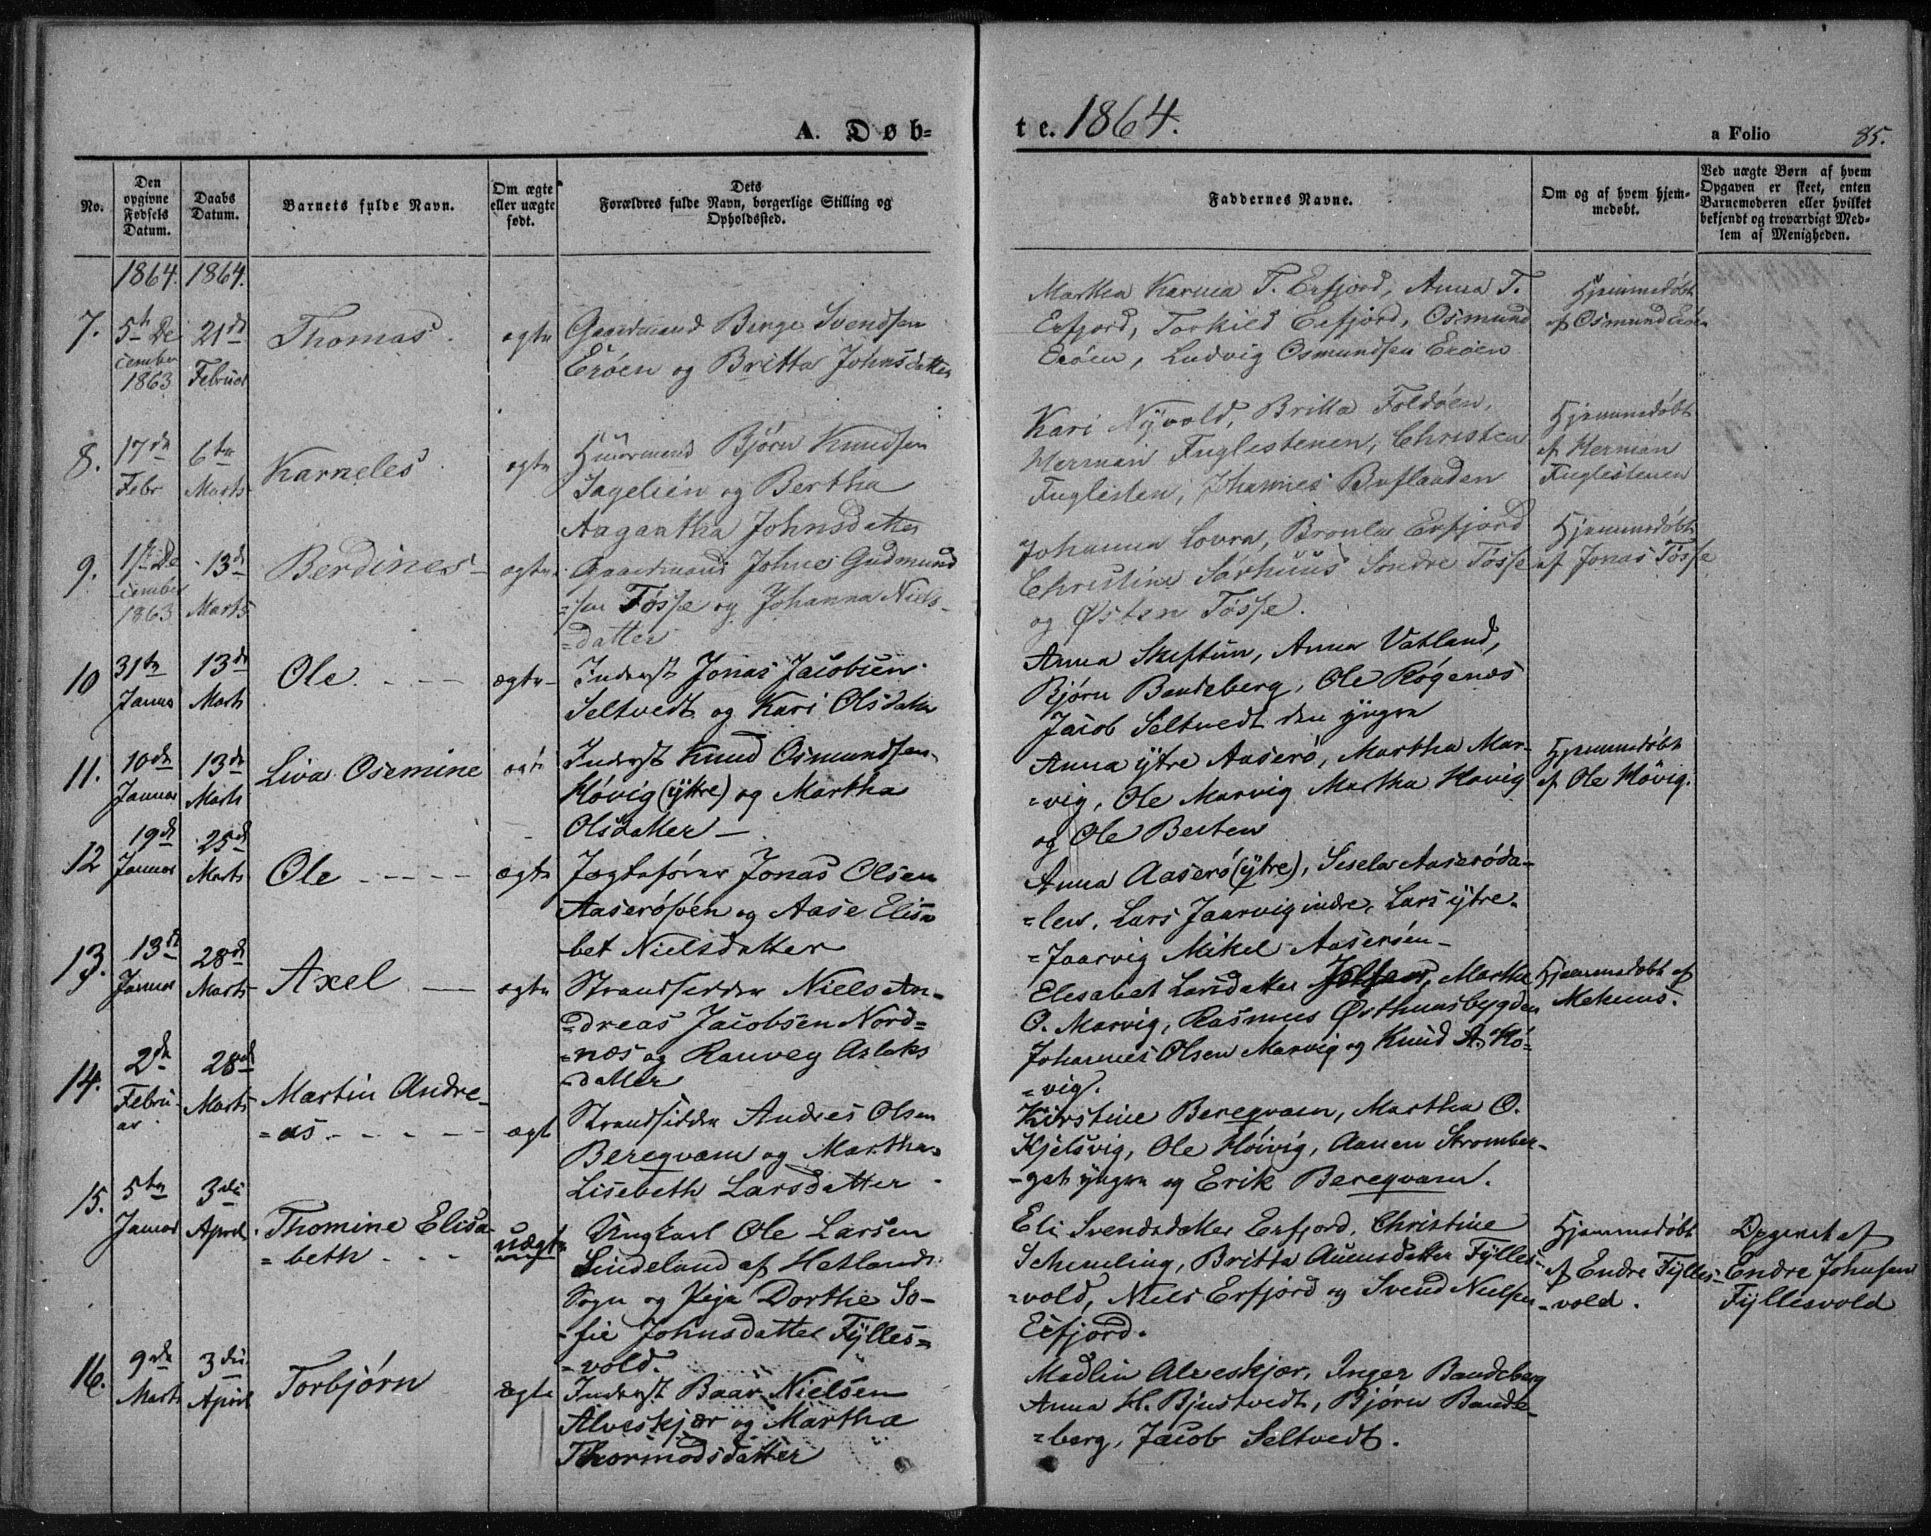 A. Døb-
te. 1864.
a Folio 85.
No.
Den opgivne Fødsels Datum.
Daabs Datum.
Barnets fulde Navn.
Om ægte eller uægte født.
Dets Forældres fulde Navn, borgerlige Stilling og Opholdssted.
Faddernes Navne.
Om og af hvem hjemmedøbt.
Ved uægte Børn af hvem
Opgaven er skeet, enten
Barnemoderen eller hvilket
bekjendt og troværdigt Med-
lem af Menigheden.
1864. 1864.
7.
5te De
cember
1863
21de
Februar
Thomas.
ægte
Gaardmand Birge Svendsen
Erøen og Britta Johnsdatter
Martha Karina T. Erfjord, Anna T.
Erfjord, Torkild Erfjord, Osmund
Erøen, Ludvig Osmundsen Erøen
Hjemmedøbt
af Osmund Erøen
8.
17de
Febr
6te
Marts
Karneles.
ægte
Huusmand Bjørn Knudsen
Sagelien og Bertha
Aagantha Johnsdatter
Kari Nyvold, Britta Foldøen,
Herman Fuglestenen, Christen
Fuglesten, Johannes Buflaaden
Hjemmedøbt
af Herman
Fuglestenen
9.
1ste De
cember
1863
13de
Marts
Berdines
ægte
Gaardmand Johne Gudmund
=sen Tøsse og Johanna Niels-
=datter
Johanna Lovra, Bronla Erfjord
Christine Sørhuus Søndre Tøsse
og Østen Tøsse.
Hjemmedøbt
af Jonas Tøsse
10
31te
Januar
13de
Marts
Ole.
ægte
Inderst Jonas Jacobsen
Seltvedt og Kari Olsdatter
Anna Skeftun, Anna Vatland,
Bjørn Bandeberg, Ole Røgenæs
Jacob Seltvedt den yngre
11.
10de
Januar
13de
Marts
Liva Osemine
ægte
Inderst Knud Osmundsen
Høvig (ytre) og Martha
Olsdatter
Anna ytre Aaserø, Martha Mar-
=vig, Ole Marvig Martha Høvig
og Ole Berten
Hjemmedøbt
af Ole Høvig.
12
19de
Januar
25de
Marts
Ole
ægte
Jægtefører Jonas Olsen
Aaserøsøen og Aase Elisa
bet Nielsdatter
Anna Aaserø (ytre), Sisela Aaserøda-
=len, Lars Jaarvig indre, Lars ytre
=Jaarvig Mikel Aaserøen
13.
13de
Januar
28de
Marts
Axel
ægte
Strandsidder Niels An-
=dreas Jacobsen Nord=
=næs og Ranveg Aslaks
=datter
Elesabet Larsdatter, Marthe
O. Marvig, Rasmus Østhuusbygden
Johannes Olsen Marvig og Knud A. Hø-
=vig.
Hjemmedøbt af
14.
2den
Febru-
ar
28de
Marts
Martin Andre-
=as.
ægte
Strandsidder Andres Olsen
Bereqvam og Martha
Lisebeth Larsdatter
Kirstine Bereqvam, Martha O.
Kjelsvig, Ole Høivig, Aanen Strømber-
=get yngre og Erik Bereqvam.
15.
5te
Januar
3die
April
Thomine Elisa
=beth
uægte
Ungkarl Ole Larsen
Lindeland af Hetlands
Sogn og Pige Dorthe So-
=fie Johnsdatter Fylles=
=vold.
Eli Svendsdatter Erfjord, Christine
Schemling, Britta Auensdatter Fylles=
=vold, Niels Erfjord og Svend Nielsen
Erfjord.
Hjemmedøbt
af Endre Fylles-
=vold.
Opgivet af
Endre Johnsen
Fyllesvold
16.
9de
Marts
3die
April
Torbjørn
ægte
Inderst Baar Nielsen
Alveskjær og Martha
Thormodsdatter
Madlin Alveskjær, Inger Bandeberg
Anna H. Bjustvedt, Bjørn Bande-
=berg, Jacob Seltvedt.